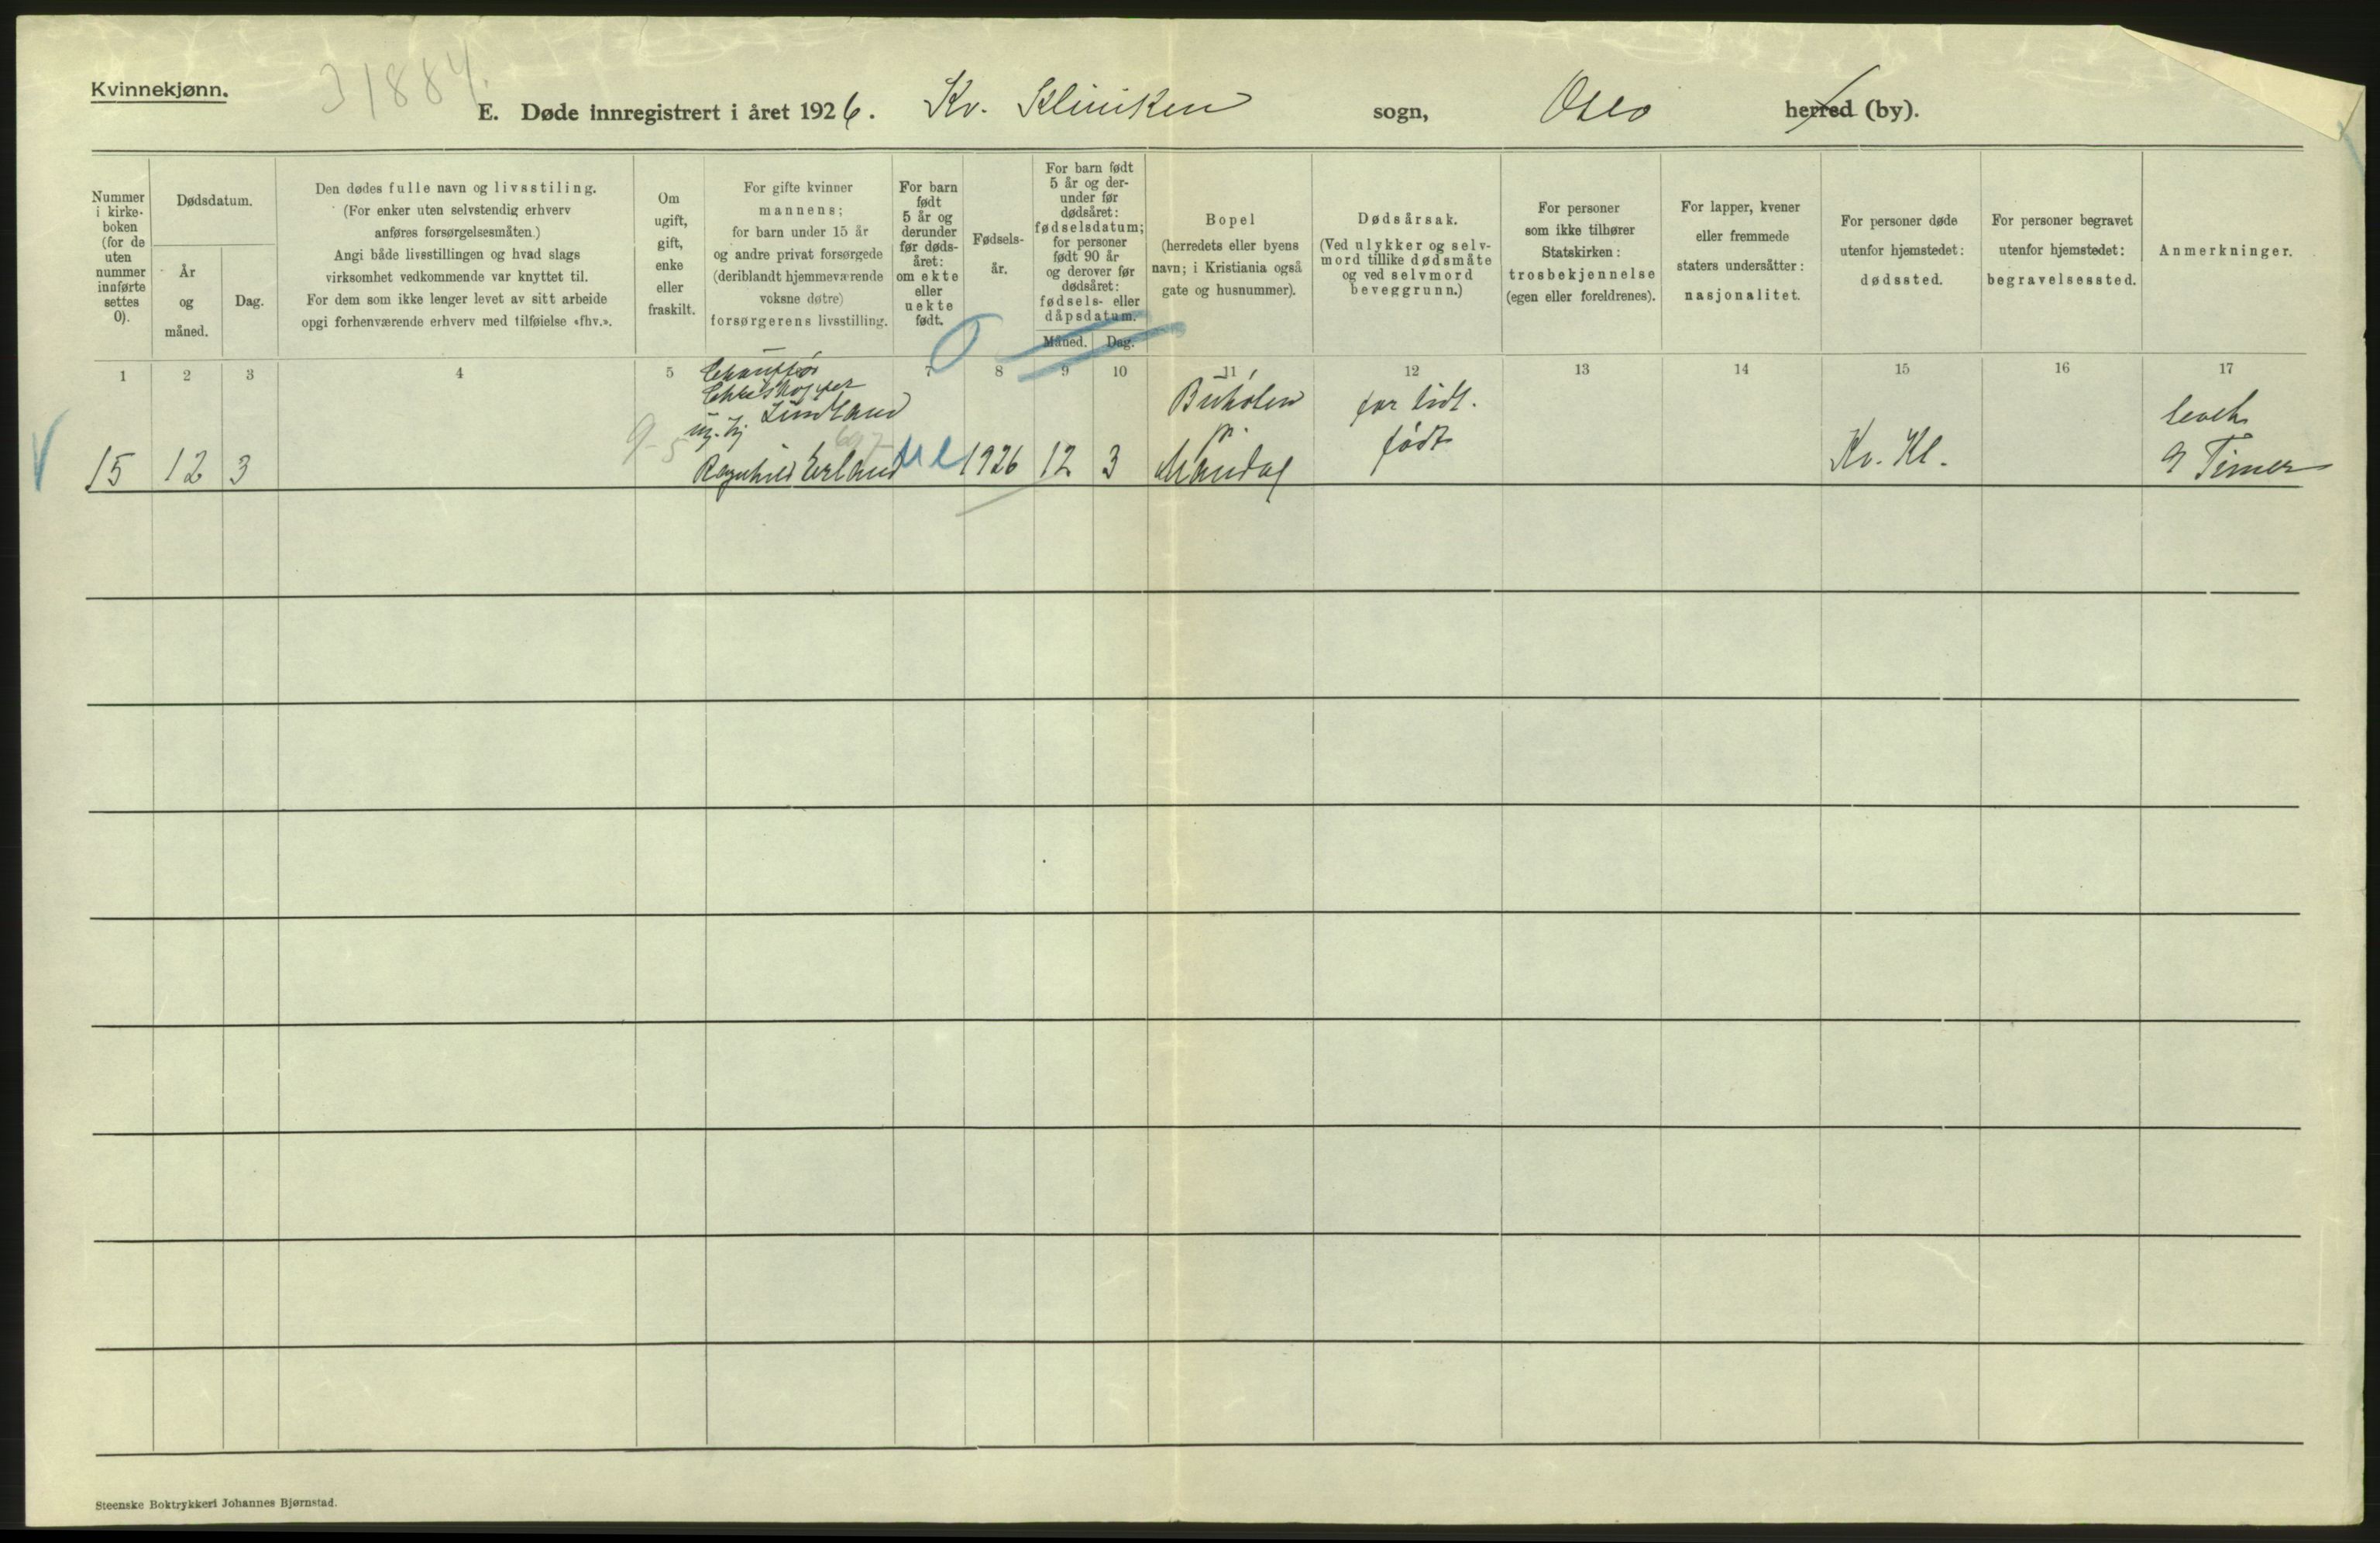 Kvinnekjønn.
31884.
E. Døde innregistrert i året 1926. Kv. Kliniken sogn, Oslo herred (by).
Nummer
i kirke-
boken
(for de
uten
nummer
innførte
settes
0).
Dødsdatum.
År
og
måned.
Dag.
Den dødes fulle navn og livsstiling.
(For enker uten selvstendig erhverv
anføres forsørgelsesmåten.)
Angi både livsstillingen og hvad slags
virksomhet vedkommende var knyttet til.
For dem som ikke lenger levet av sitt arbeide
opgi forhenværende erhverv med tilføielse «fhv.».
Om
ugift,
gift,
enke
eller
fraskilt.
For gifte kvinner
mannens;
for barn under 15 år
og andre privat forsørgede
(deriblandt hjemmeværende
voksne døtre)
forsørgerens livsstilling.
For barn
født
5 år og
derunder
før døds-
året:
om ekte
eller
uekte
født.
Fødsels-
år.
For barn født
5 år og der-
under før
dødsåret:
fødselsdatum;
for personer
født 90 år
og derover før
dødsåret:
fødsels- eller
dåpsdatum.
Måned. Dag.
Bopel
(herredets eller byens
navn; i Kristiania også
gate og husnummer).
Dødsårsak.
(Ved ulykker og selv-
mord tillike dødsmåte
og ved selvmord
beveggrunn.)
For personer
som ikke tilhører
Statskirken:
trosbekjennelse
(egen eller foreldrenes).
For lapper, kvener
eller fremmede
staters undersåtter:
nasjonalitet.
For personer døde
utenfor hjemstedet:
dødssted.
For personer begravet
utenfor hjemstedet:
begravelsessted.
Anmerkninger.
1 2 3 4 5 7 8 9 10 11 12 13 14 15 16 17
Chauffør
Lindland
Ragnhild Erland
15 12 3
ue 1926 12 3
Buholen
pr.
Mandal
for tidl.
født
Kv. Kl.
levet
9 Timer
Steenske Boktrykkeri Johannes Bjørnstad.